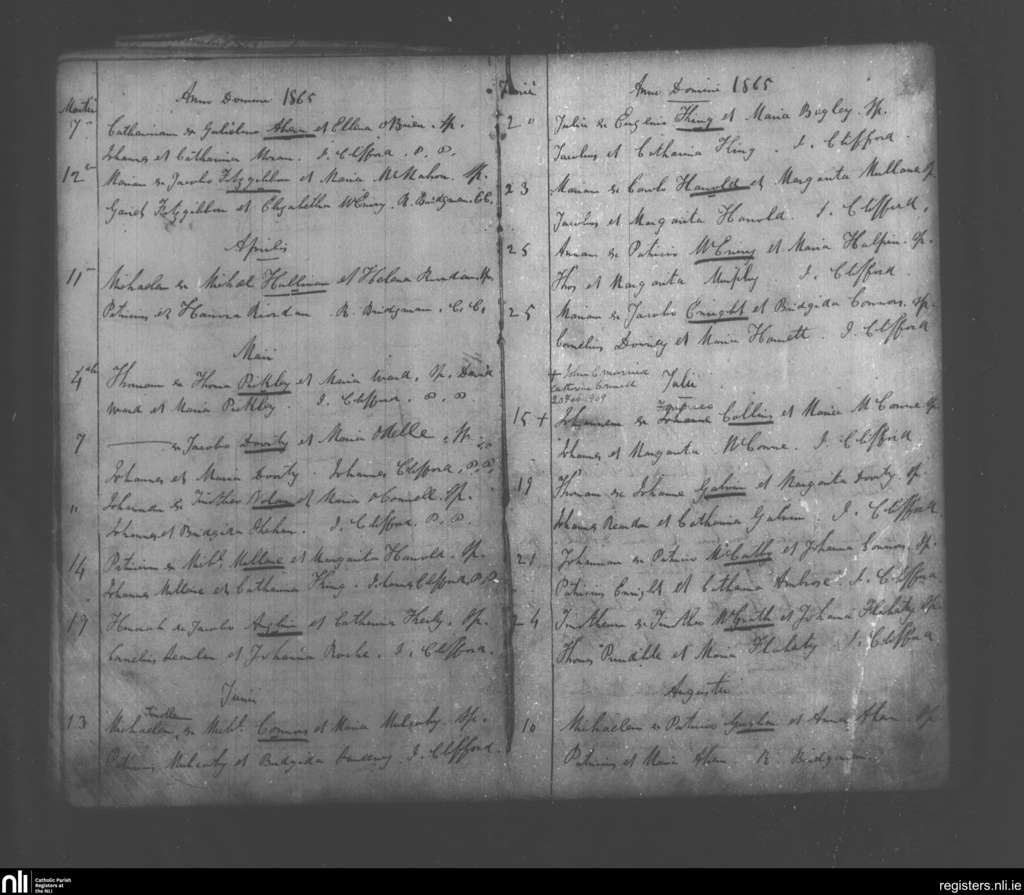 Anno Domini 1865
Martii
7 Catharinam ex Gulielmo Ahern et Ellena O'Brien. Sp.
Johannes et Catharina Moran. J. Clifford. P. P.
12 Mariam ex Jacobo Fitzgibbon et Maria McMahon. Sp.
Garret Fitzgibbon et Elizabetha McEniry. R. Bridgman. C.C.
Aprilis
11 Michaelem ex Michael Hallinan et Helena Riordan. Sp.
Patricius et Hanora Riordan R. Bridgman. C. C.
Maii
4th Thomam ex Thoma Peikley et Maria Ward. Sp. David
Ward et Maria Peikley. J. Clifford. P. P.
7 ——— ex Jacobo Dority et Maria Odelle. Sp.
Johannes et Maria Dority. Johannes Clifford, P. P.
" Johannem ex Timotheo Nolan et Maria O'Connell. Sp.
Johannes et Bridgida J. Clifford. P. P.
14 Patricium ex Michl. Mullane et Margarita Hanold. Sp.
Johannes Mullane et Catharina King. Johannes Clifford P. P.
19 Hannah ex Jacobo Anglin et Catharina Sp.
Cornelius Scanlan et Johanna Roche. J. Clifford.
Junii
13 Michaelem ex Michl. Connors et Maria Mulcahy. Sp.
Patricius Mulcahy et Bridgida J. Clifford.
Junii
Anno Domini 1865
20 Julia ex Eugenio King et Maria Bagley. Sp.
Jacobus et Catharina King. J. Clifford
23 Mariam ex Carolo Hanold et Margarita Mullane Sp.
Jacobus et Margarita Hanold. J. Clifford.
25 Annam ex Patricio McEniry et Maria Halpin. Sp.
Thos et Margarita Murphy J. Clifford
25 Mariam ex Jacobo Enright et Bridgida Connors. Sp.
Cornelius Downey et Maria Hanett. J. Clifford
+ John C married
Catherine
20 Feb 1909
Julii
15 + Johannem ex Johanne Collins et Maria Sp
Johannes et Margarita J. Clifford
19 Thomam ex Johanne Galvin et Margarita Dority. Sp
Johannes Reardan et Catharina Galvin J. Clifford
21 Johannam ex Patricio McCarthy et Johanna Connors. Sp.
Patricius Enright et Catharina Ambrose. J. Clifford.
24 Timotheum ex Timotheo McGrath et Johanna Flahaty Sp
Thomas et Maria Flahaty J. Clifford
Augusti
10 Michaelem ex Patricio et Anna Ahern Sp
Patricius et Maria Ahern R. Bridgman.
nli
Catholic Parish
Registers at
the NLI
registers.nli.ie